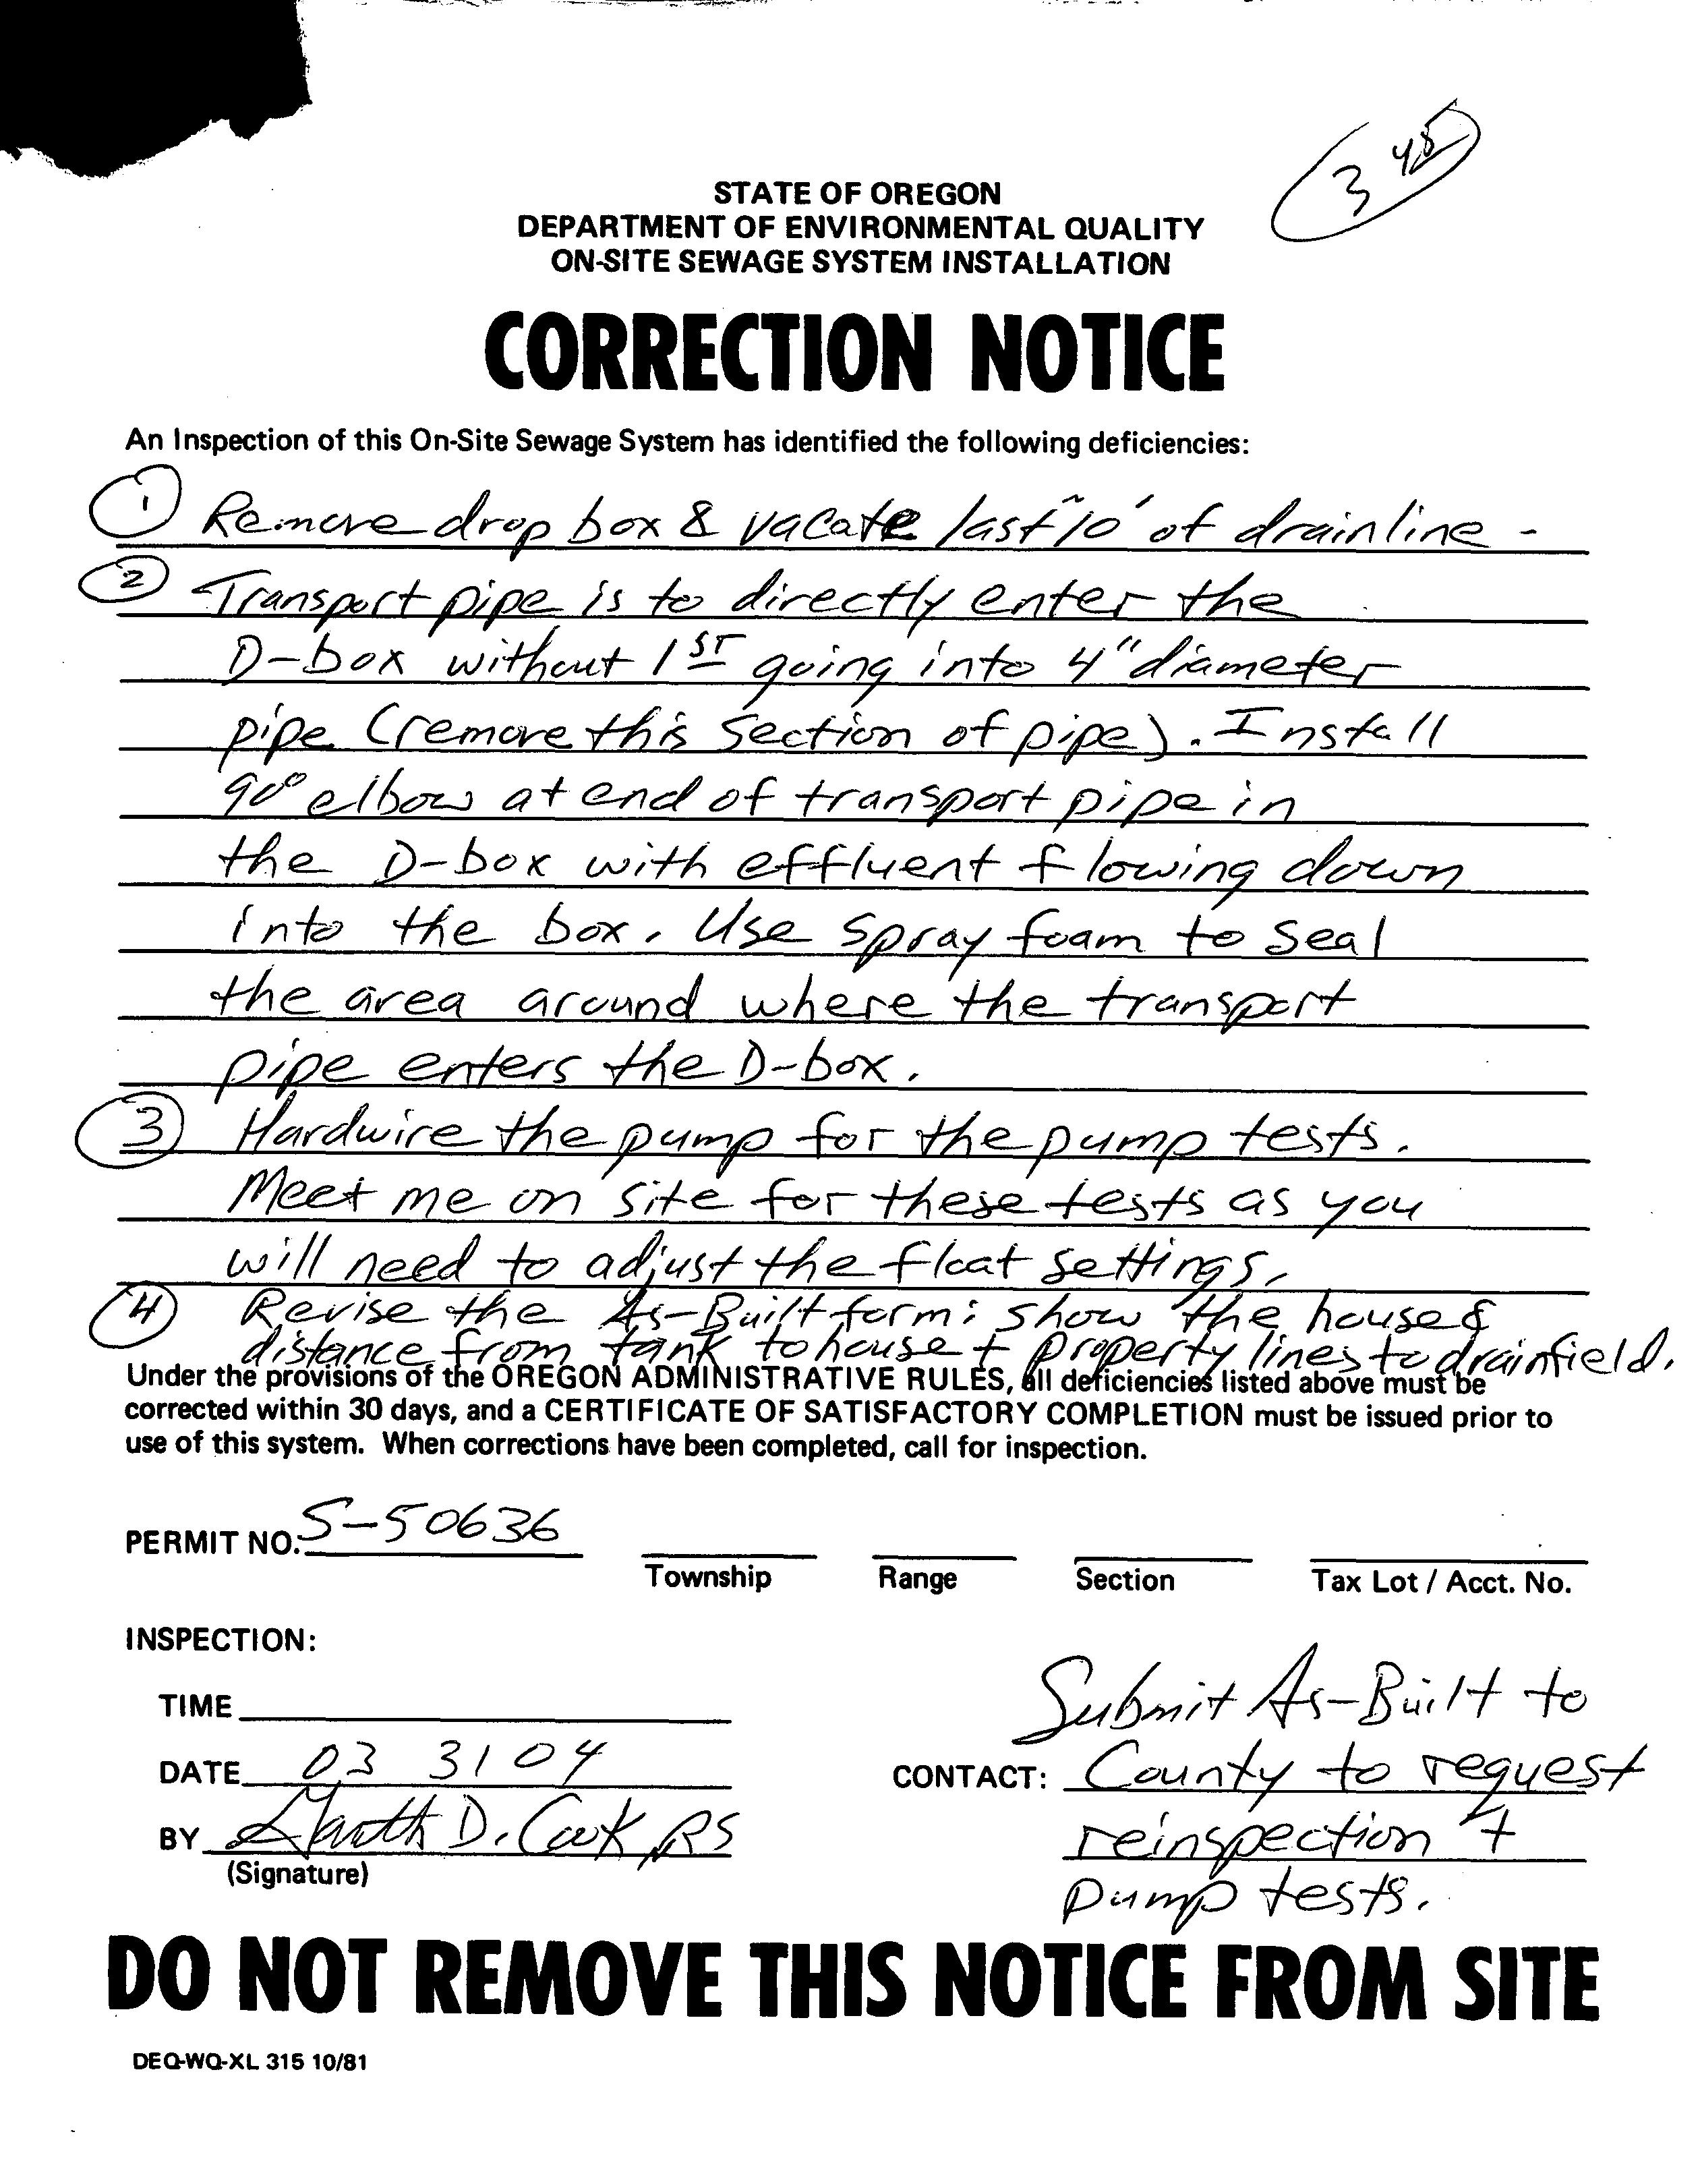 3 45
STATE OF OREGON
DEPARTMENT OF ENVIRONMENTAL QUALITY
ON-SITE SEWAGE SYSTEM INSTALLATION
CORRECTION NOTICE
An Inspection of this On-Site Sewage System has identified the following deficiencies:
1 Remove drop box & vacate last ~10' of drainline -
2 Transport pipe is to directly enter the
D-box without 1ST going into 4" diameter
pipe (remove this section of pipe). Install
90° elbow at end of transport pipe in
the D-box with effluent flowing down
into the box. Use spray foam to seal
the area around where the transport
pipe enters the D-box.
3 Hardwire the pump for the pump tests.
Meet me on site for these tests as you
will need to adjust the float settings.
4 Revise the As-Built form: show the house &
distance from tank to house + property lines to drainfield.
Under the provisions of the OREGON ADMINISTRATIVE RULES, all deficiencies listed above must be
corrected within 30 days, and a CERTIFICATE OF SATISFACTORY COMPLETION must be issued prior to
use of this system. When corrections have been completed, call for inspection.
PERMIT NO. S-50636
Township Range Section Tax Lot / Acct. No.
INSPECTION:
TIME
DATE 03 31 04
BY Garth D. Cook, RS
(Signature)
Submit As-Built to
CONTACT: County to request
reinspection +
pump tests.
DO NOT REMOVE THIS NOTICE FROM SITE
DEQ-WQ-XL 315 10/81